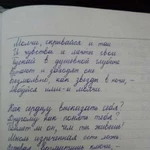 Молчи, скрывайся и таи
И чувства и мечты свои
Пускай в душевной глубине
Встают и заходят оне
Безмолвно, как звезды в ночи, -
Любуйся ими - и молчи
Как сердцу высказать себя?
Другому как понять тебя?
Поймёт ли он, чем ты живёшь?
Мысль изреченная есть ложь
Взрывая, возмутишь ключи, -